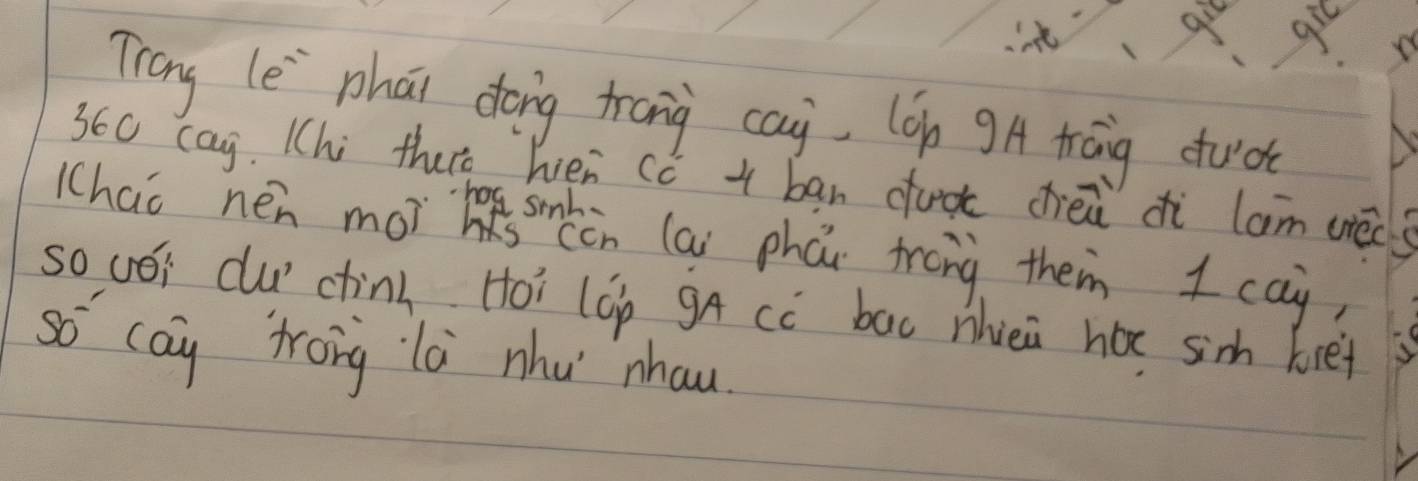 Trong lễ phát động trồng cây, lớp 9A trồng được
360 cây. Khi thực hiện có 4 bạn được điều đi làm việc
khác nên mỗi học sinh còn lại phải trồng thêm 1 cây,
so với dự định. Hỏi lớp 9A có bao nhiêu học sinh biết
số cây trồng là như nhau.